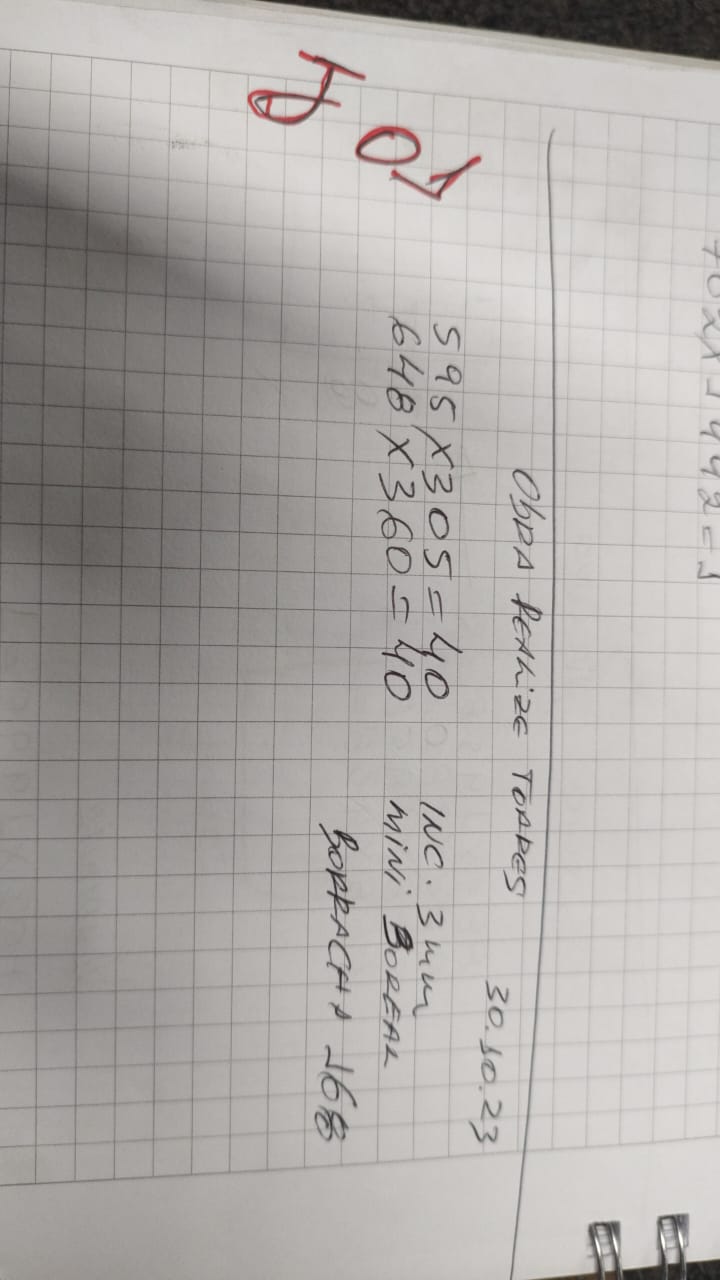 OBRA REALIZE TORRES 30.10.23
595 X 305 = 40 INC. 3mm
648 X 360 = 40 MINI BOREAL
BORRACHA 168